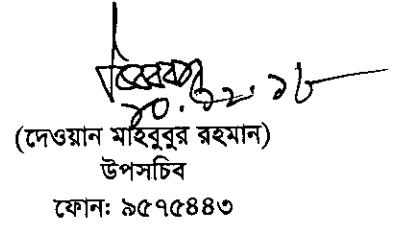 ২০.১২.১৮
(দেওয়ান মাহবুবুর রহমান)
উপসচিব
ফোন: ৯৫৭৫৪৪৩